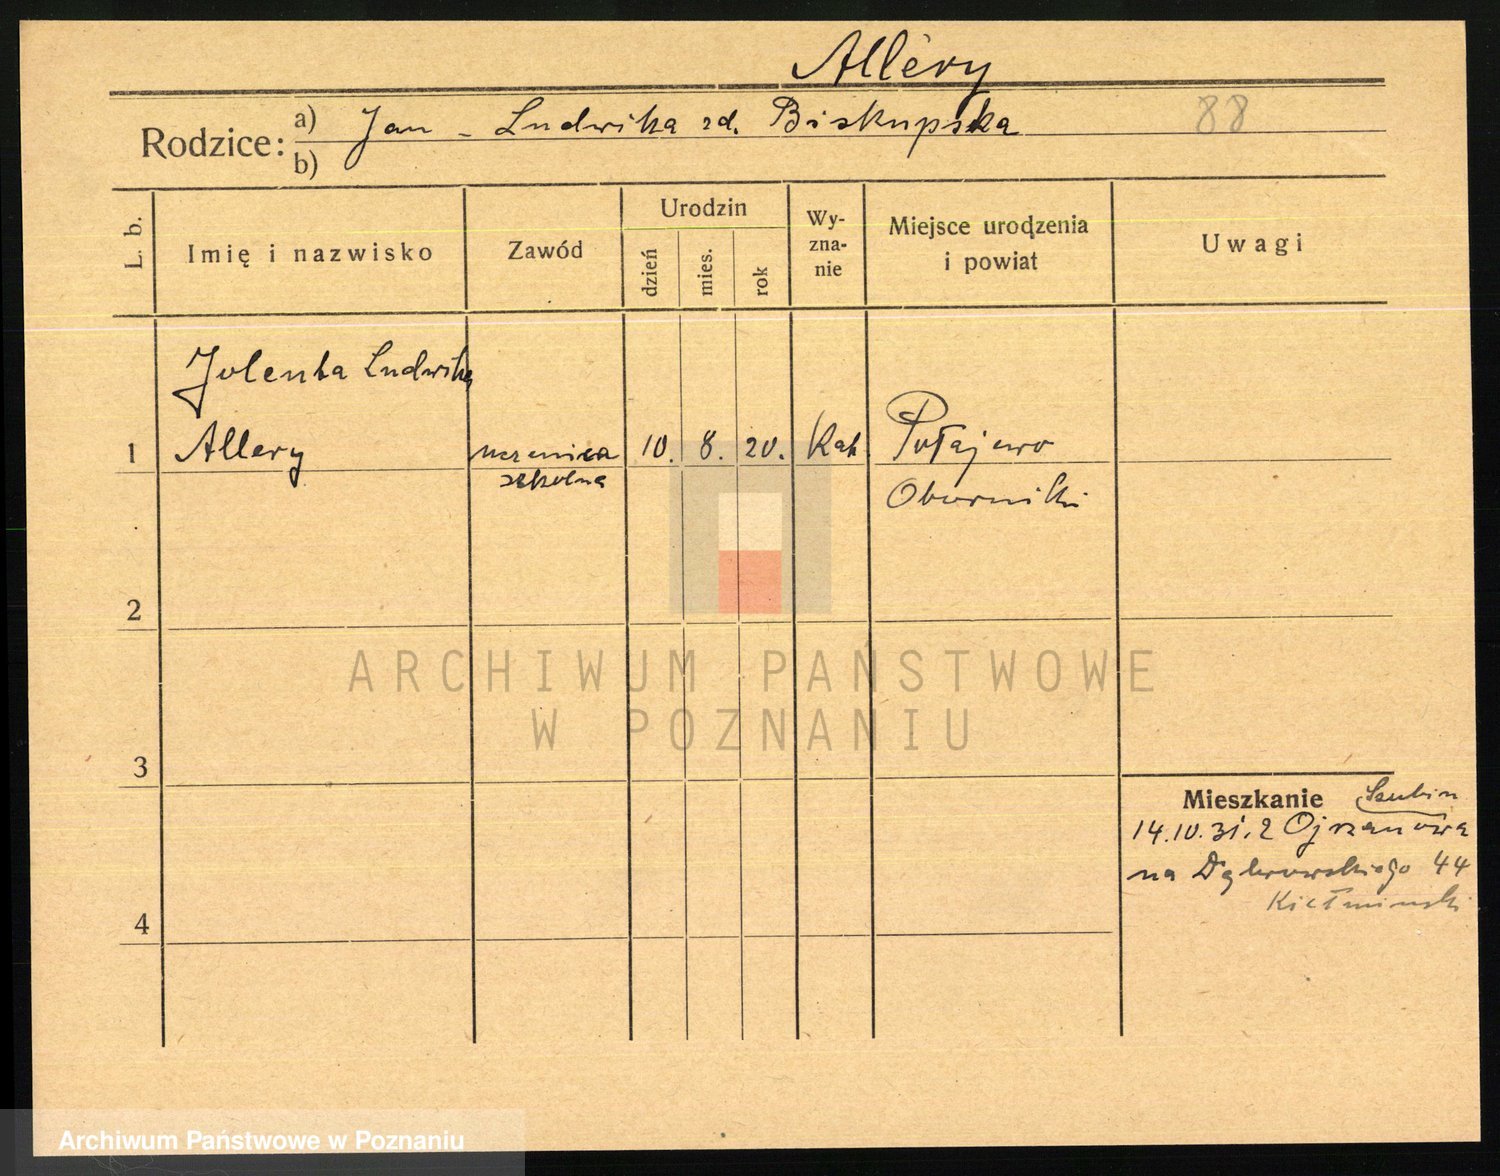 Allery
Rodzice: a) Jan - Ludwika zd. Biskupska 88
b)
L. b. Imię i nazwisko Zawód Urodzin dzień mies. rok Wy-zna-nie Miejsce urodzenia i powiat Uwagi
Jolenta Ludwika
1 Allery uczenica 10. 8. 20. Kat Połajewo
szkolna Oborniki
2
3
Mieszkanie Szubin
14.10.31. z Ojrzanowa
na Dąbrowskiego 44
Kiełminski
4
ARCHIWUM PAŃSTWOWE
W POZNANIU
Archiwum Państwowe w Poznaniu